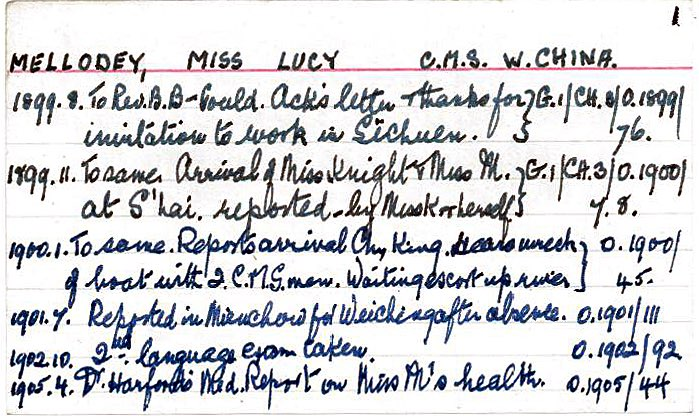 1
MELLODEY, MISS LUCY C.M.S. W. CHINA.
1899.8. To Rev. B. B-Gould. Acks letter + thanks for } G.1/CH.3/O.1899/
invitation to work in Sichuen. } 76.
1899.11. To same. Arrival of Miss Knight + Miss M. } G.1/CH.3/O.1900/
at S'hai. reported - by Miss K or herself } 7. 8.
1900.1. To same. Reports arrival Chung King. Hears wreck } O.1900/
of boat with 2 C.M.S. men. Waiting escort up river } 45.
1901.7. Reported in Mienchow for Weiching after absence. O.1901/111
1902.10. 2nd. language exam taken. O.1902/92
1905.4. Dr. Harford's Med. Report on Miss M's health. O.1905/44